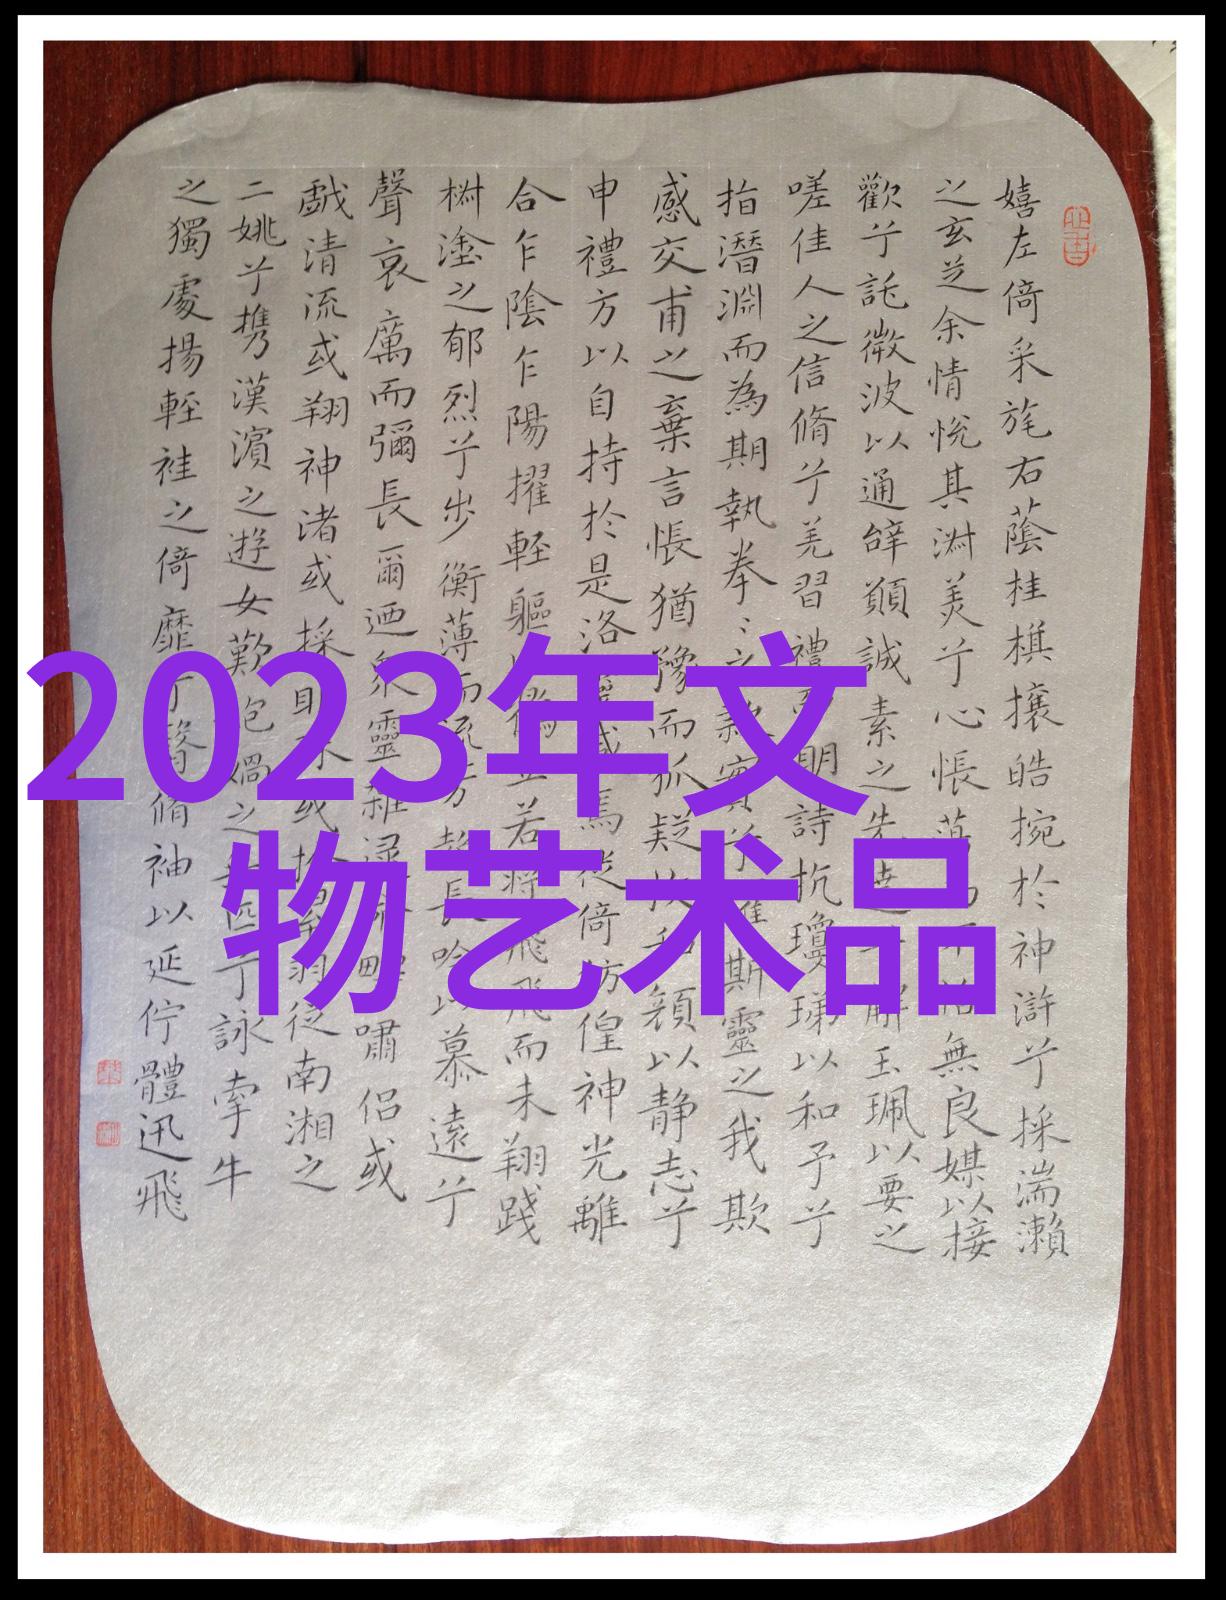 2023年文
物艺术品
嬉左倚采旄右蔭桂棋攘皓捥於神滸兮採湍瀨
之玄芝余情悅其淑美兮心悵無良媒以接
歡兮託微波以通辭願誠素之先解玉珮以要之
嗟佳人之信脩兮羌習禮明詩抗瓊珶以和予兮
指潛淵而為期執拳〻之款實兮斯靈之我欺
感交甫之棄言悵猶豫而狐疑顏以静志兮
申禮方以自持於是洛焉徙倚彷徨神光離
合乍陰乍陽擢輕軀立若將飛飛而未翔踐
椒塗之郁烈兮步衡薄而流芳長吟以慕遠兮
聲哀厲而彌長爾迺衆靈雜嘯侶或
戲清流或翔神渚或採珠或羽從南湘之
二姚兮携漢濱之遊女歎媧之匹兮詠牽牛
之獨處揚輕袿之倚靡兮翳脩袖以延佇體迅飛